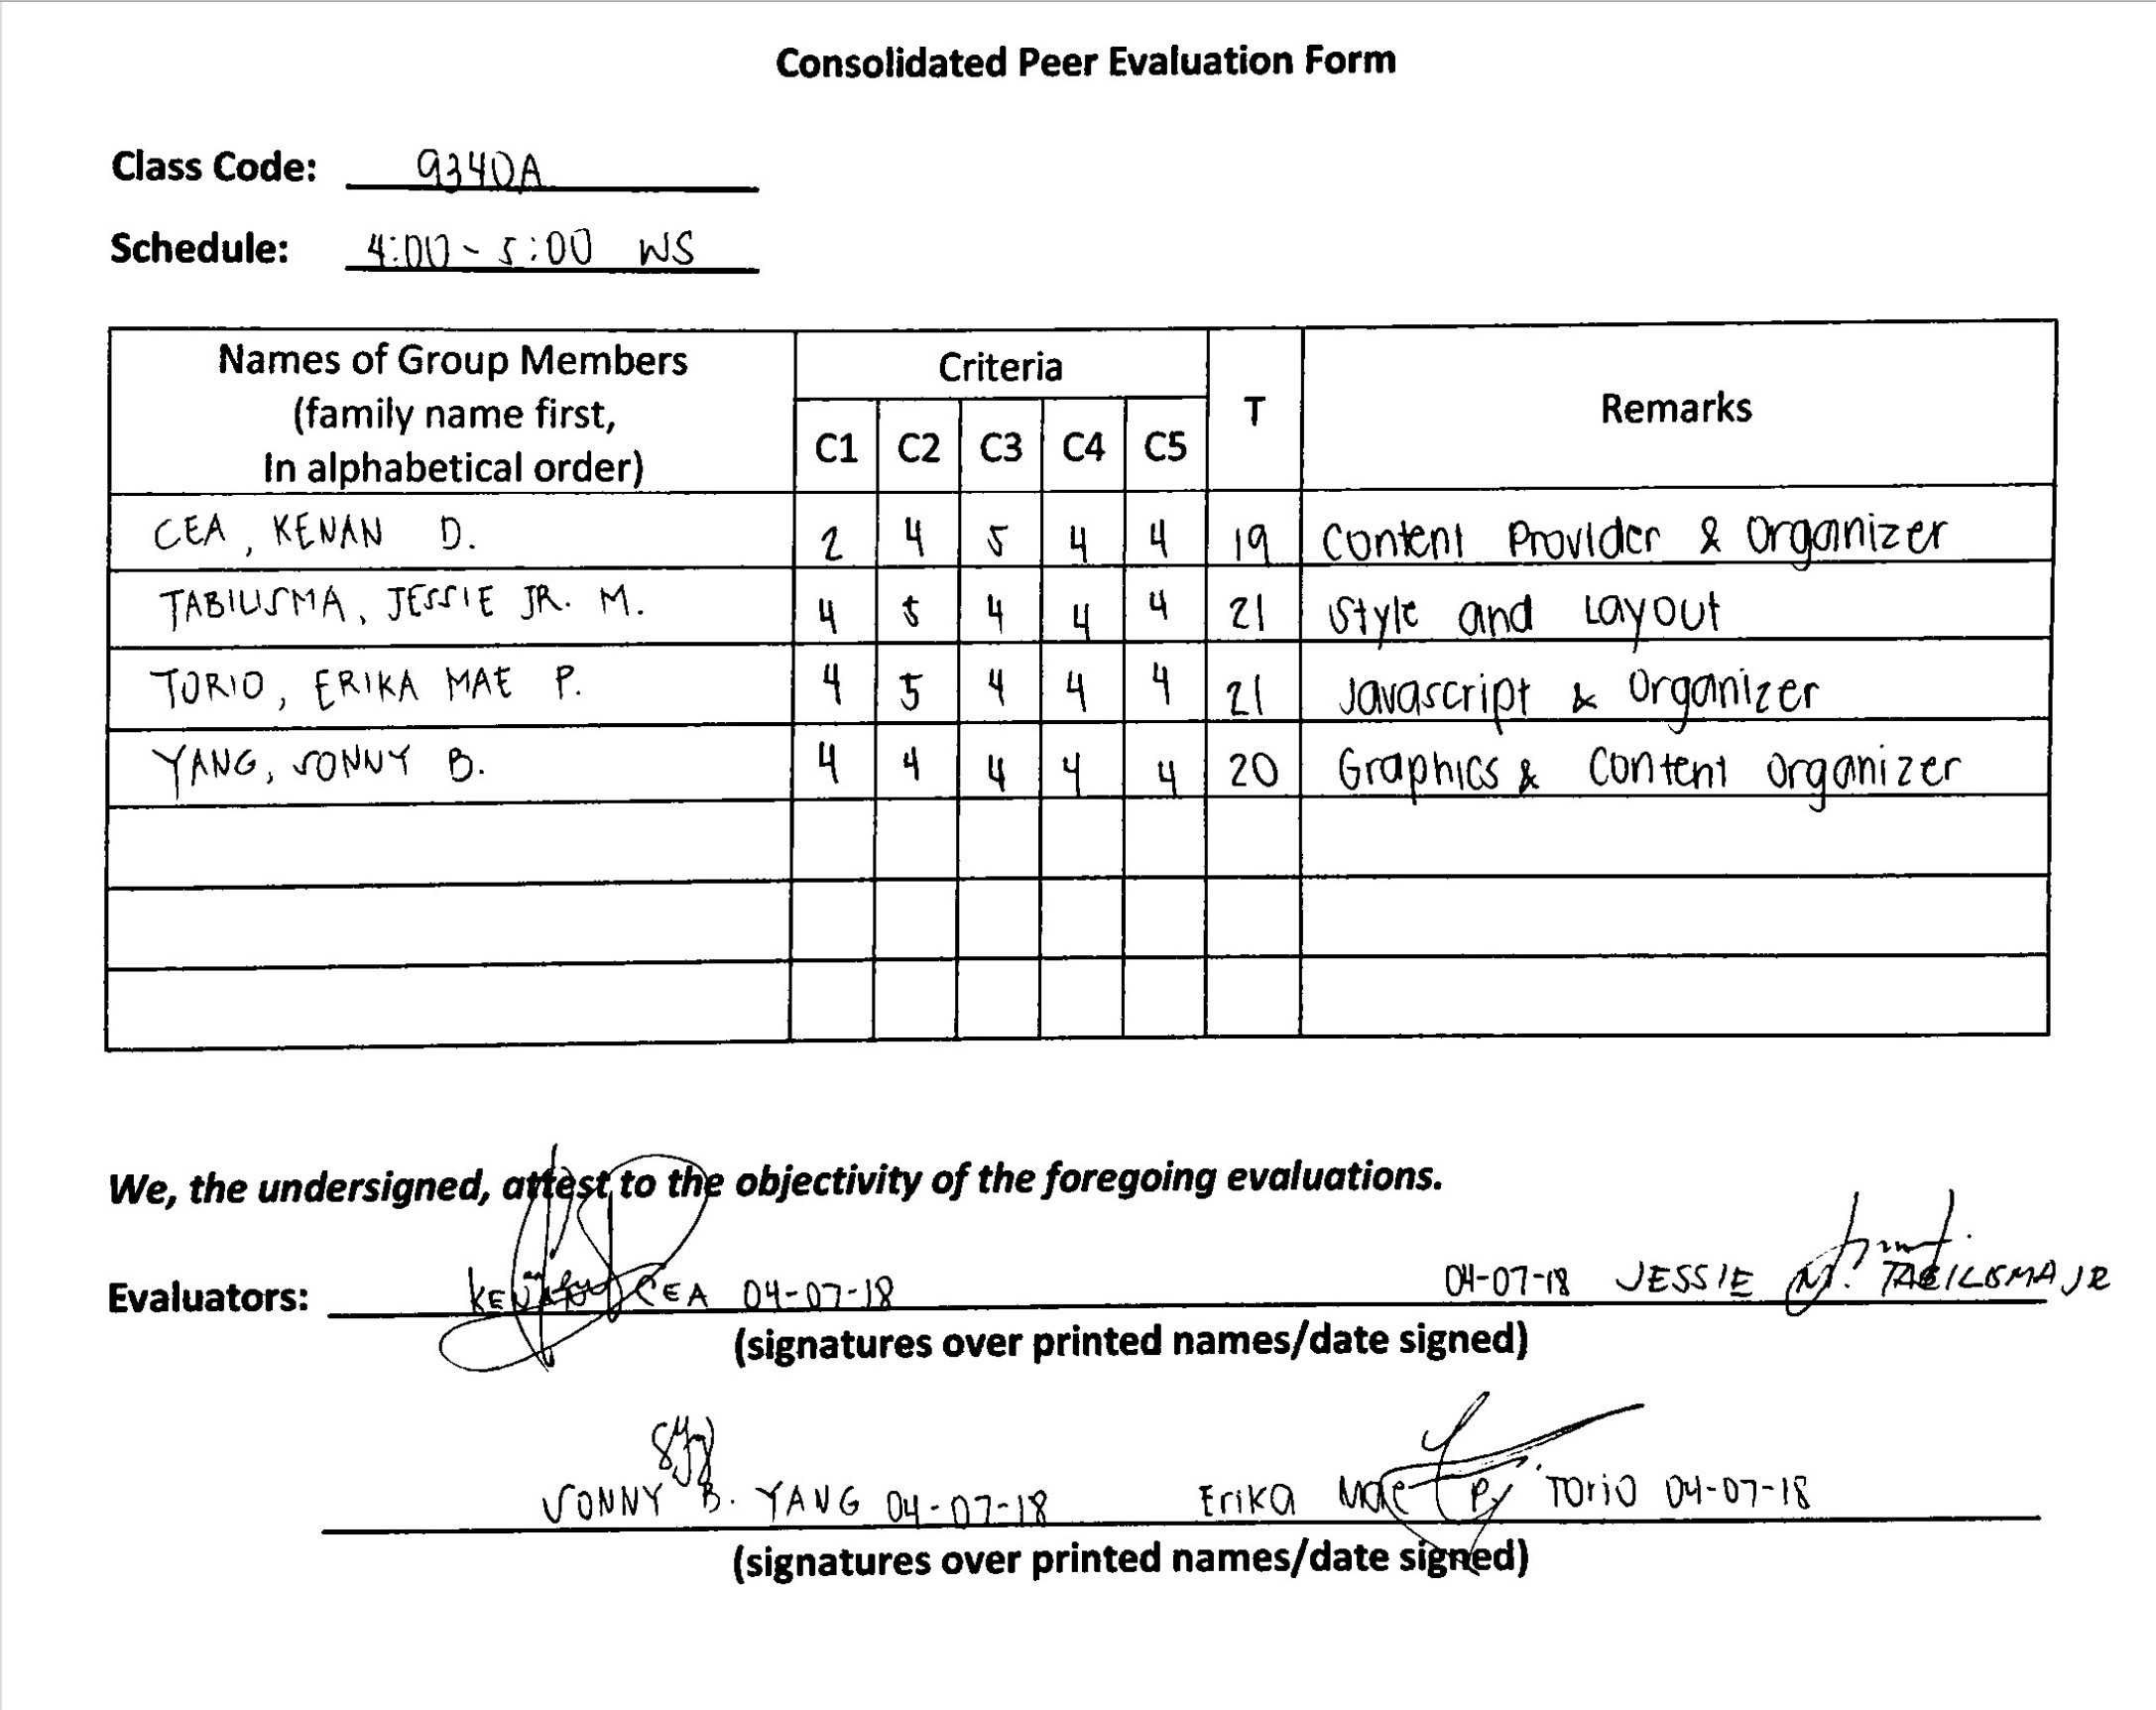 Consolidated Peer Evaluation Form
Class Code: 9340A
Schedule: 4:00 - 5:00 WS
Names of Group Members
(family name first,
In alphabetical order)
Criteria
T
Remarks
C1 C2 C3 C4 C5
CEA, KENAN D. 2 4 5 4 4 19 Content Provider & Organizer
TABILISMA, JESSIE JR. M. 4 5 4 4 4 21 Style and Layout
TORIO, ERIKA MAE P. 4 5 4 4 4 21 Javascript & Organizer
YANG, SONNY B. 4 4 4 4 4 20 Graphics & Content Organizer
We, the undersigned, attest to the objectivity of the foregoing evaluations.
Evaluators: CEA 04-07-18 04-07-18 JESSIE M. JR
(signatures over printed names/date signed)
SONNY B. YANG 04-07-18 Erika Mae P. Torio 04-07-18
(signatures over printed names/date signed)